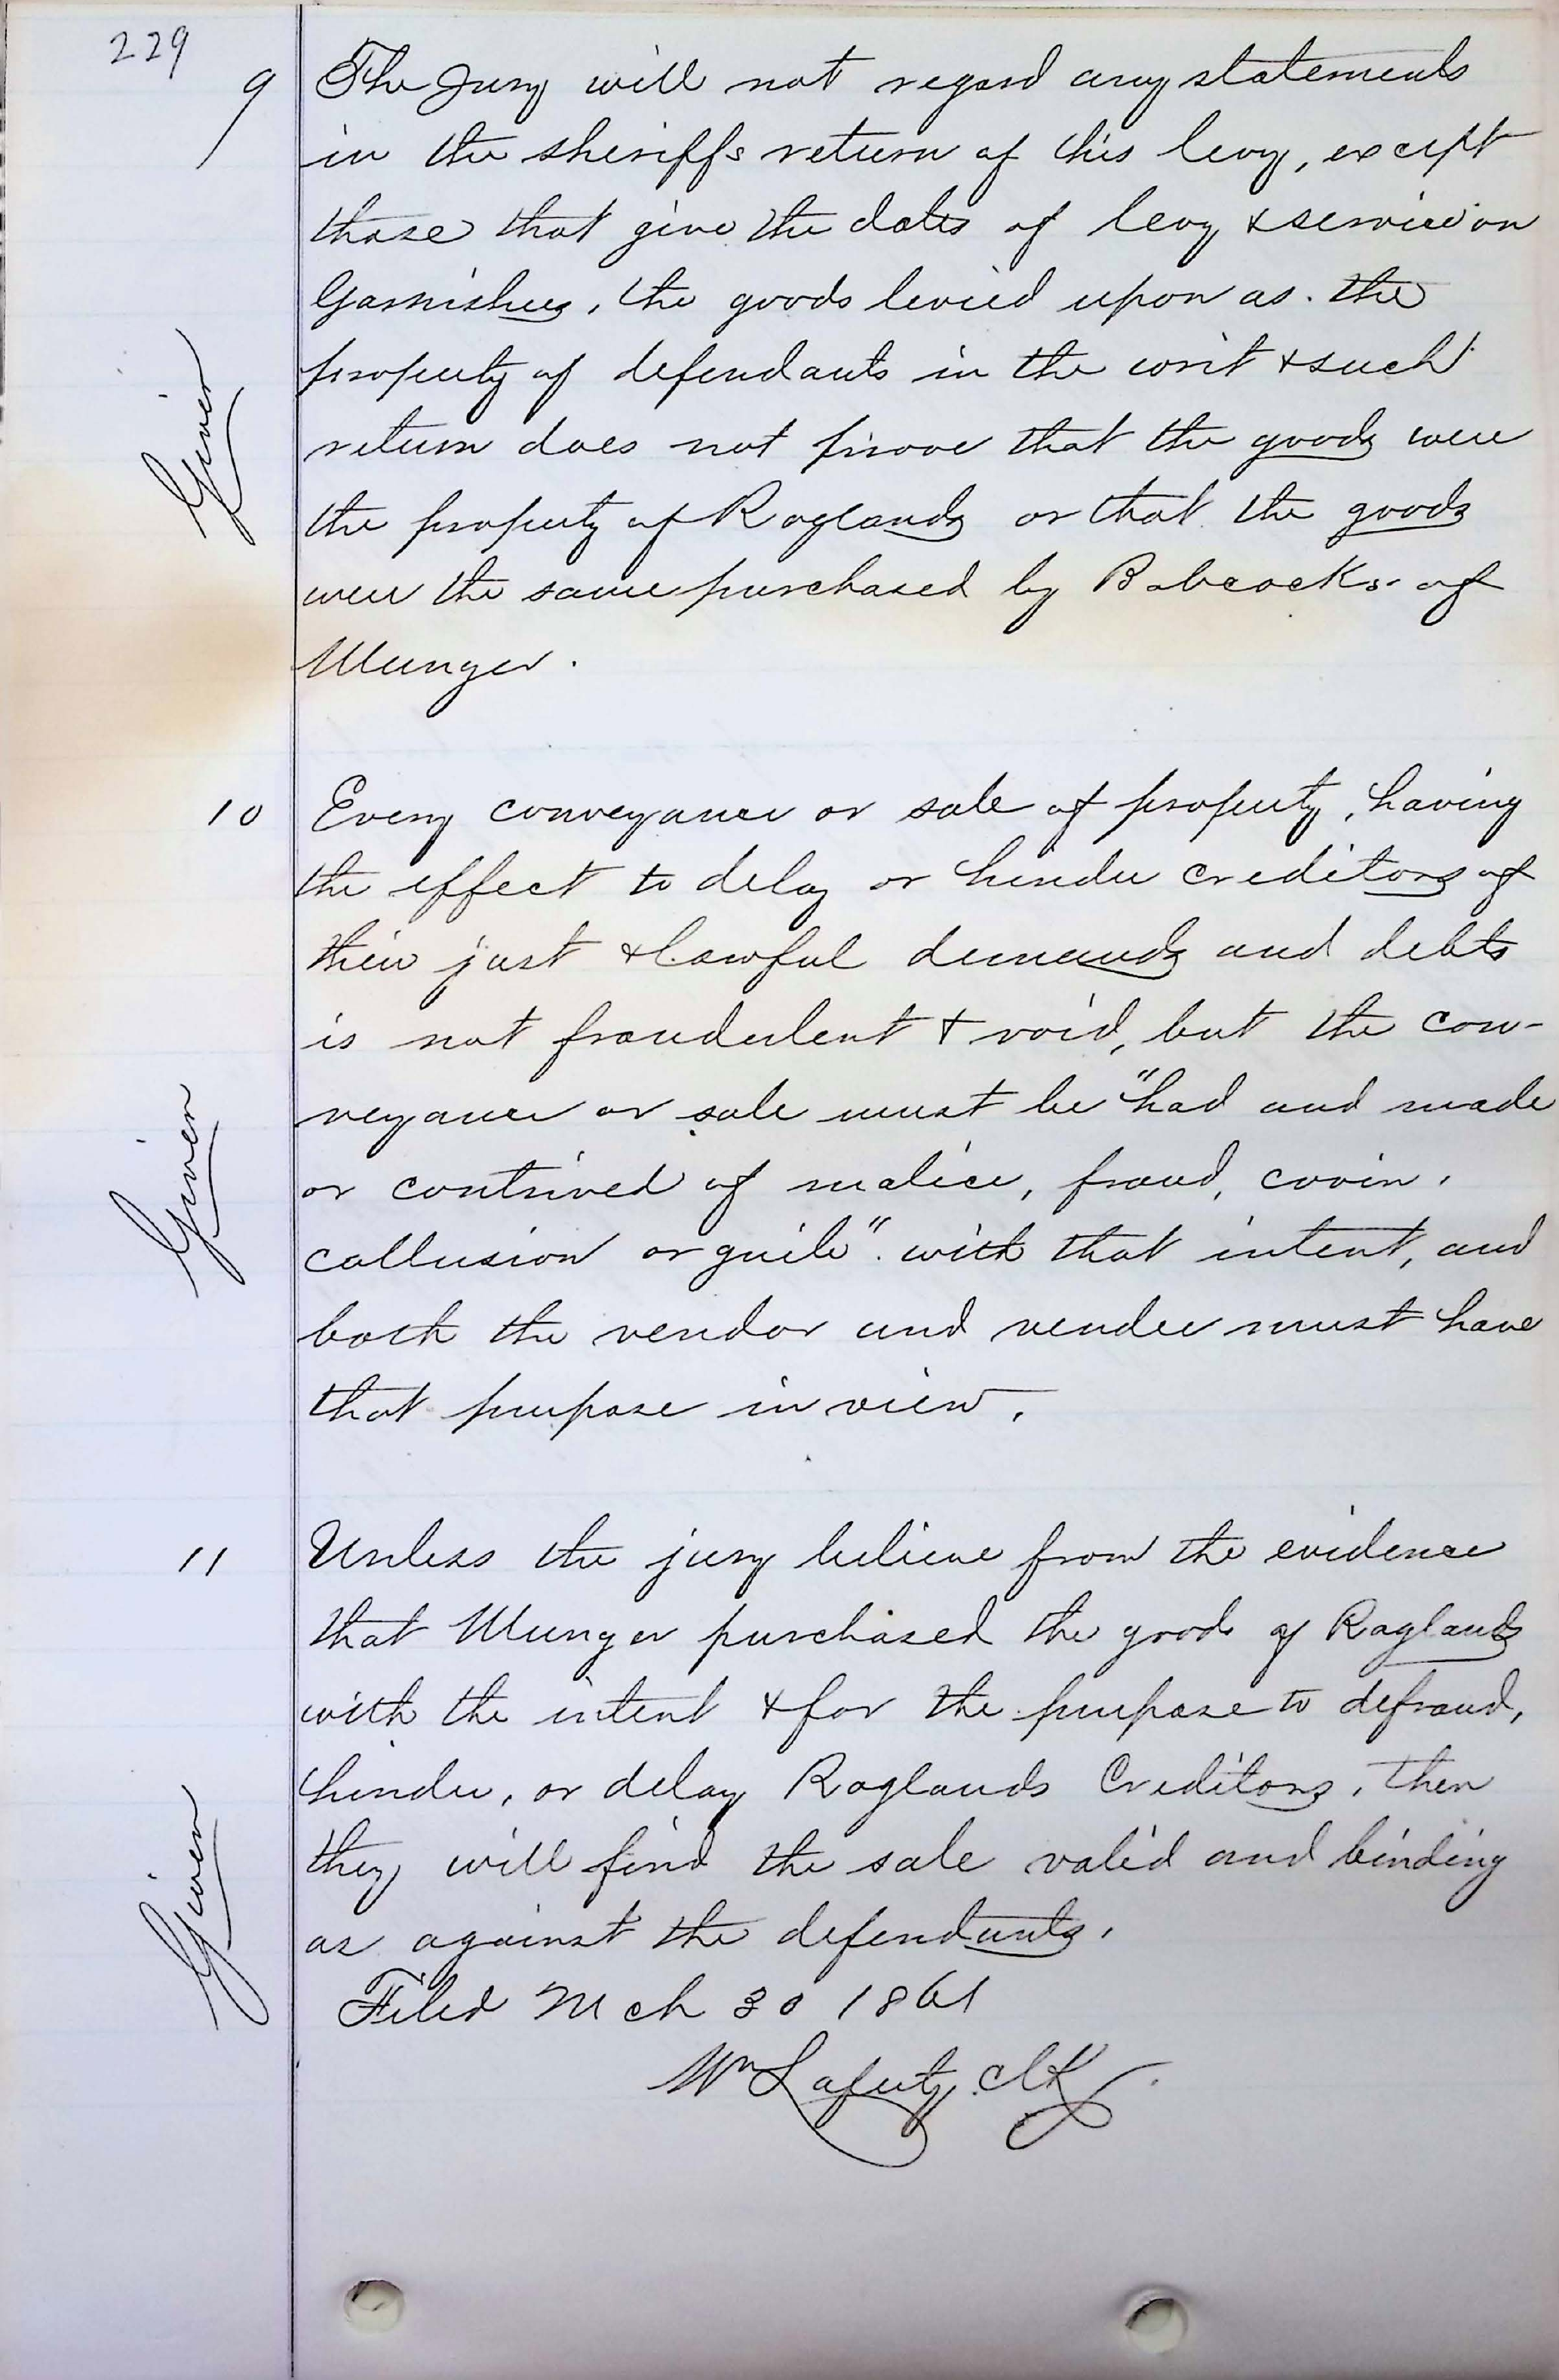 229
9 The Jury will not regard any statements
in the sheriffs return of this levy, except
those that give the dates of levy & service on
Garnishees, the goods levied upon as the
property of defendants in the writ & such
return does not prove that the goods were
the property of Raglands or that the goods
were the same purchased by Babcocks of
Munger.
Given
10 Every conveyance or sale of property, having
the effect to delay or hinder creditors of
their just & lawful demands and debts
is not fraudulent & void, but the con-
veyance or sale must be "had and made
or contrived of malice, fraud, covin,
collusion or guile" with that intent, and
both the vendor and vendee must have
that purpose in view.
Given
11 Unless the jury believe from the evidence
that Munger purchased the goods of Raglands
with the intent & for the purpose to defraud,
hinder, or delay Raglands Creditors, then
they will find the sale valid and binding
as against the defendants.
Given
Filed Mch 30 1861
Wm Laferty Clk